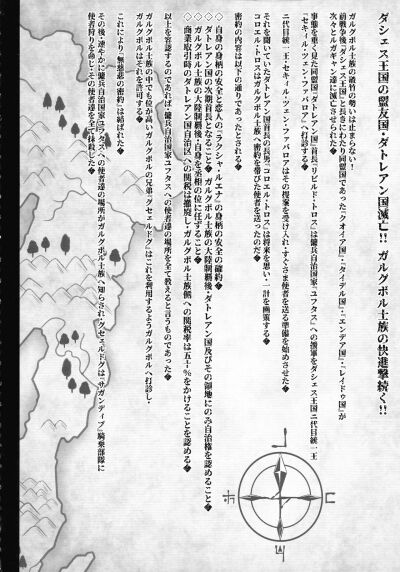 ダシェス王国の盟友国・ダトレアン国滅亡!! ガルグボルド族の快進撃続く!!
ガルグボルド族の破竹の勢いは止まらない!
前戦争後「ダシェス王国」と長きにわたり同盟国であった「クオイア国」・「タイデル国」・「エンデア国」・「レイドゥ国」が
次々とルガギャン達に滅亡させられた◆
事態を重く見た同盟国「ダトレアン国」首長「リビルド・トロス」は傭兵自治国家「ユフタス」への援軍をダシェス王国二代目統一王
「セキール・ツェン・ファバロア」へ打診する◆
二代目統一王・セキィル・ツェン・ファバロアはその提案を受け入れ・すぐさま使者を送る準備を始めさせた◆
それを聞いていたダトレアン国首長の長男「コロエル・トロス」は将来を思い・一計を画策する◆
コロエル・トロスはガルグボルド族へ密約を帯びた使者を送ったのだ◆
密約の内容は以下の通りであったとされる◆
◇自身の身柄の安全と恋人の「ラクシャ・ルエナ」の身柄の安全の確約◆
◇ダトレアン国の次期首長となること◆ガルグボルド族の大陸制覇後・ダトレアン国及びその領地にのみ自治権を認めること◆
◇ガルグボルド族の大陸制覇後・自身を丞相の位に任ずること◆
◇商業取引時のダトレアン国自治区への関税は撤廃し・ガルグボルド族側への関税率は五十%をかけることを認める◆
以上を容認するのであれば・傭兵自治国家ユフタスへの使者達の場所を全て教えるというものであった◆
ガルグボルド族の中でも位が高いガルグボルの兄弟「グセェルドグ」はこれを利用するようガルグボルへ打診し・
ガルグボルはそれを許可する◆
これにより「無慈悲の密約」は結ばれた◆
その後・速やかに傭兵自治国家「ユフタス」への使者達の場所がガルグボルド族へ知らされ・グセェルドグは「サガンディブ」騎乗部隊に
使者狩りを命じ・その使者達を全て抹殺した◆